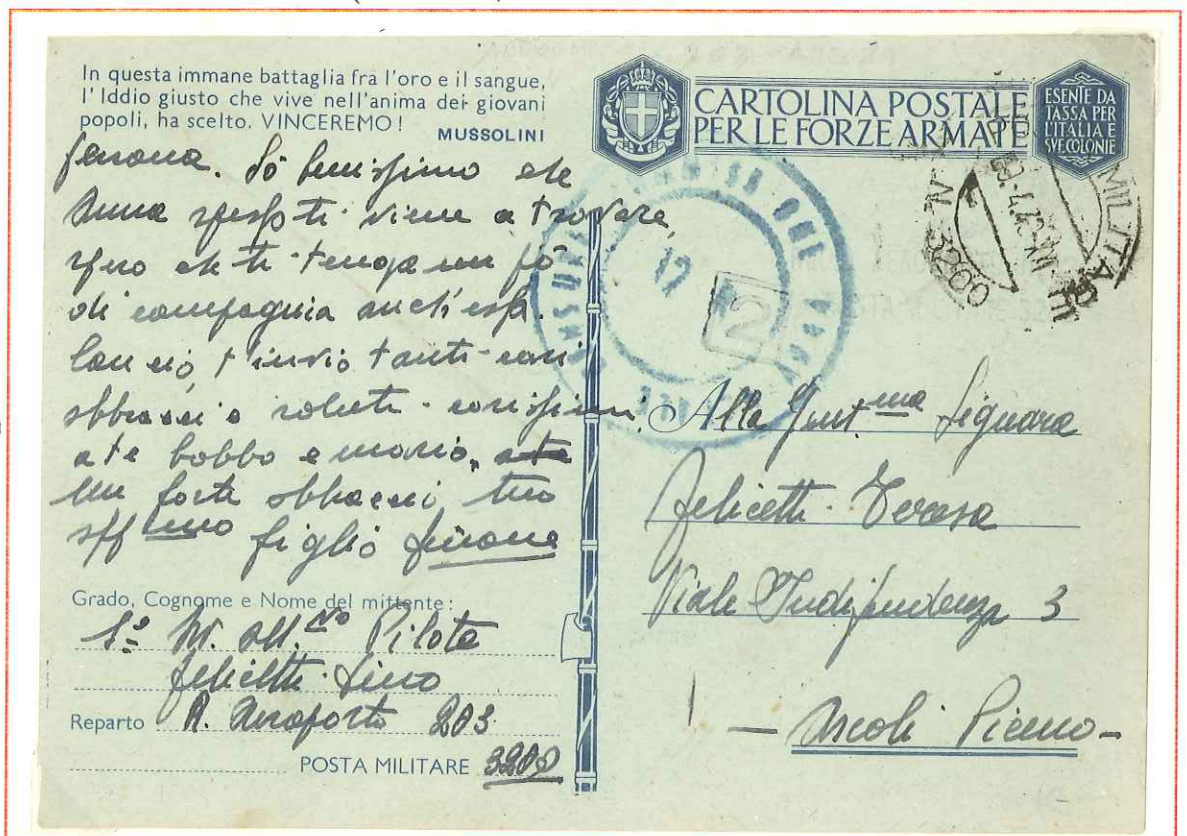 In questa immane battaglia fra l'oro e il sangue,
l'Iddio giusto che vive nell'anima dei giovani
popoli, ha scelto. VINCEREMO!
MUSSOLINI
CARTOLINA POSTALE
PER LE FORZE ARMATE
ESENTE DA
TASSA PER
L'ITALIA E
SVE COLONIE
persona. Sò benissimo che
Anna spesso ti viene a trovare
spero che ti tenga un pò
di compagnia anch'essa.
Con ciò t'invio tanti cari
abbracci e saluti carissimi
a te babbo e mario,
un forte abbracci tuo
aff mo figlio
Grado, Cognome e Nome del mittente:
1º Pilota
Felicetti Lino
Reparto R. Aeroporto 203
POSTA MILITARE 3200
3200
17
2
Alla Gent.ma Signora
Felicetti Teresa
Viale Indipendenza 3
- Ascoli Piceno -